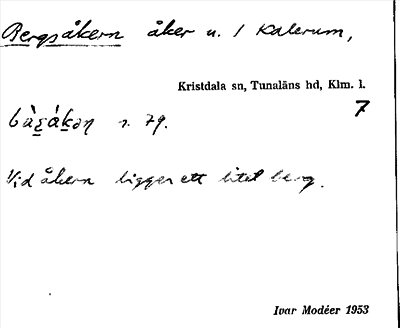 Bergsåkern åker u. 1 Kalerum,
Kristdala sn, Tunaläns hd, Klm. l.
7
s. 79.
Vid åkern ligger ett litet berg.
Ivar Modéer 1953